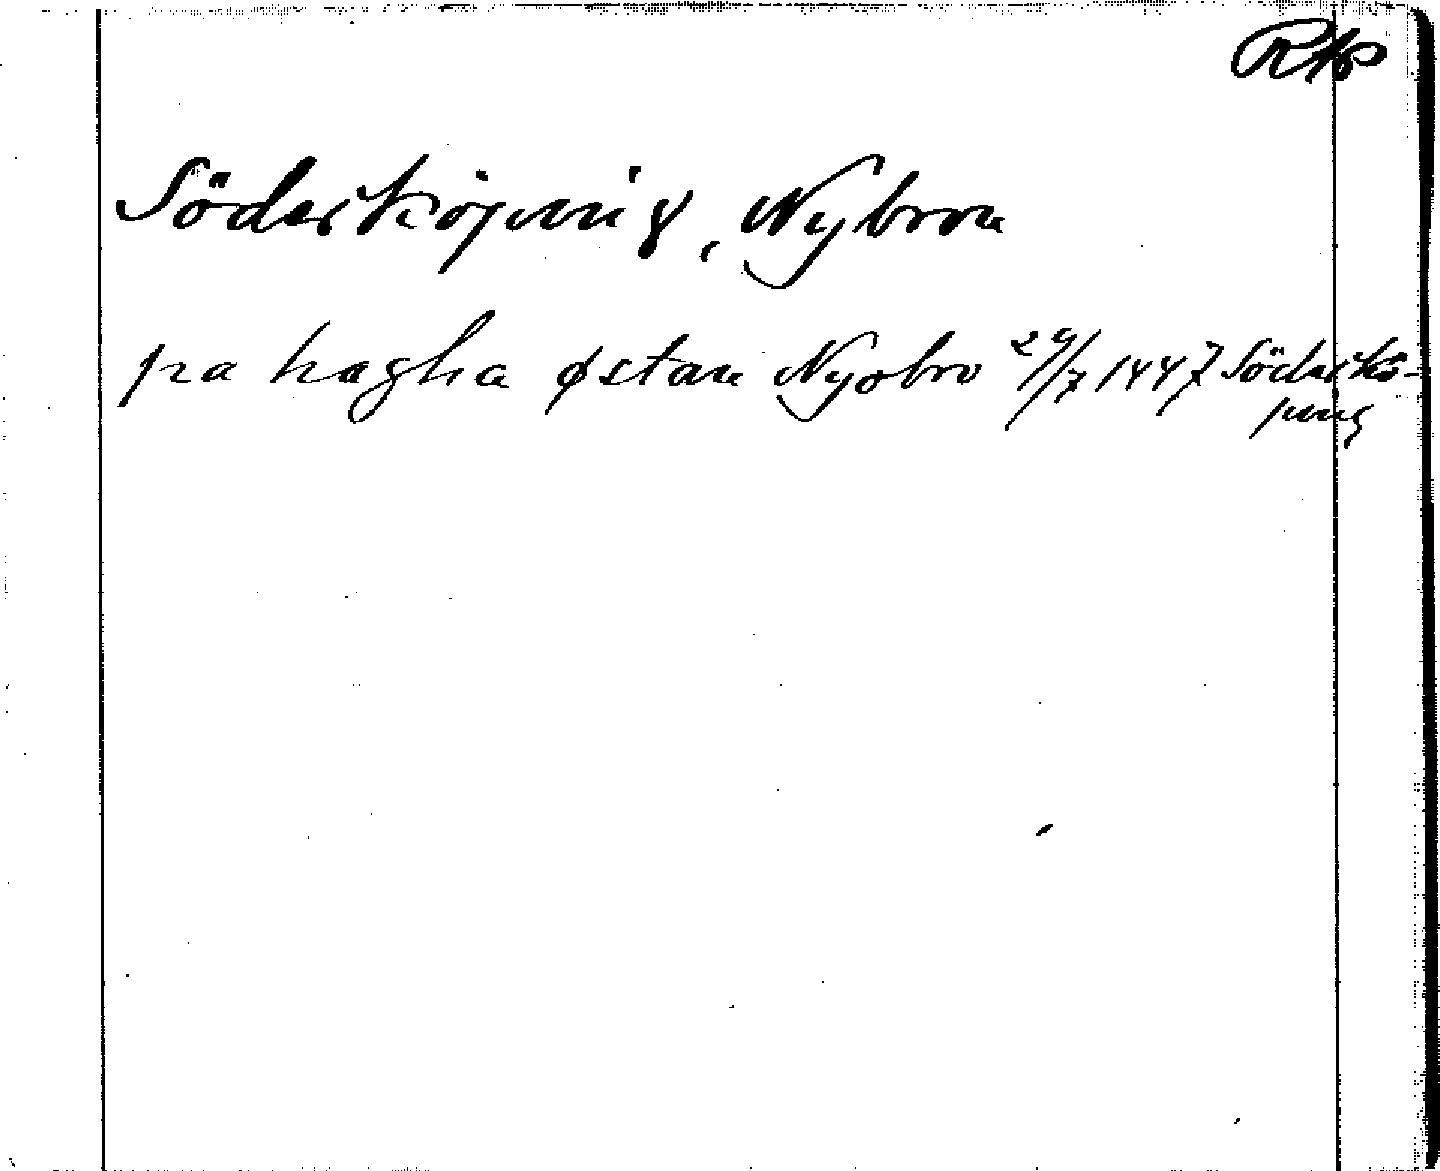 Rkp
Söderköping, Nybron
pa hagha østan Nyobro 29/7 1447 Söderkö-
ping